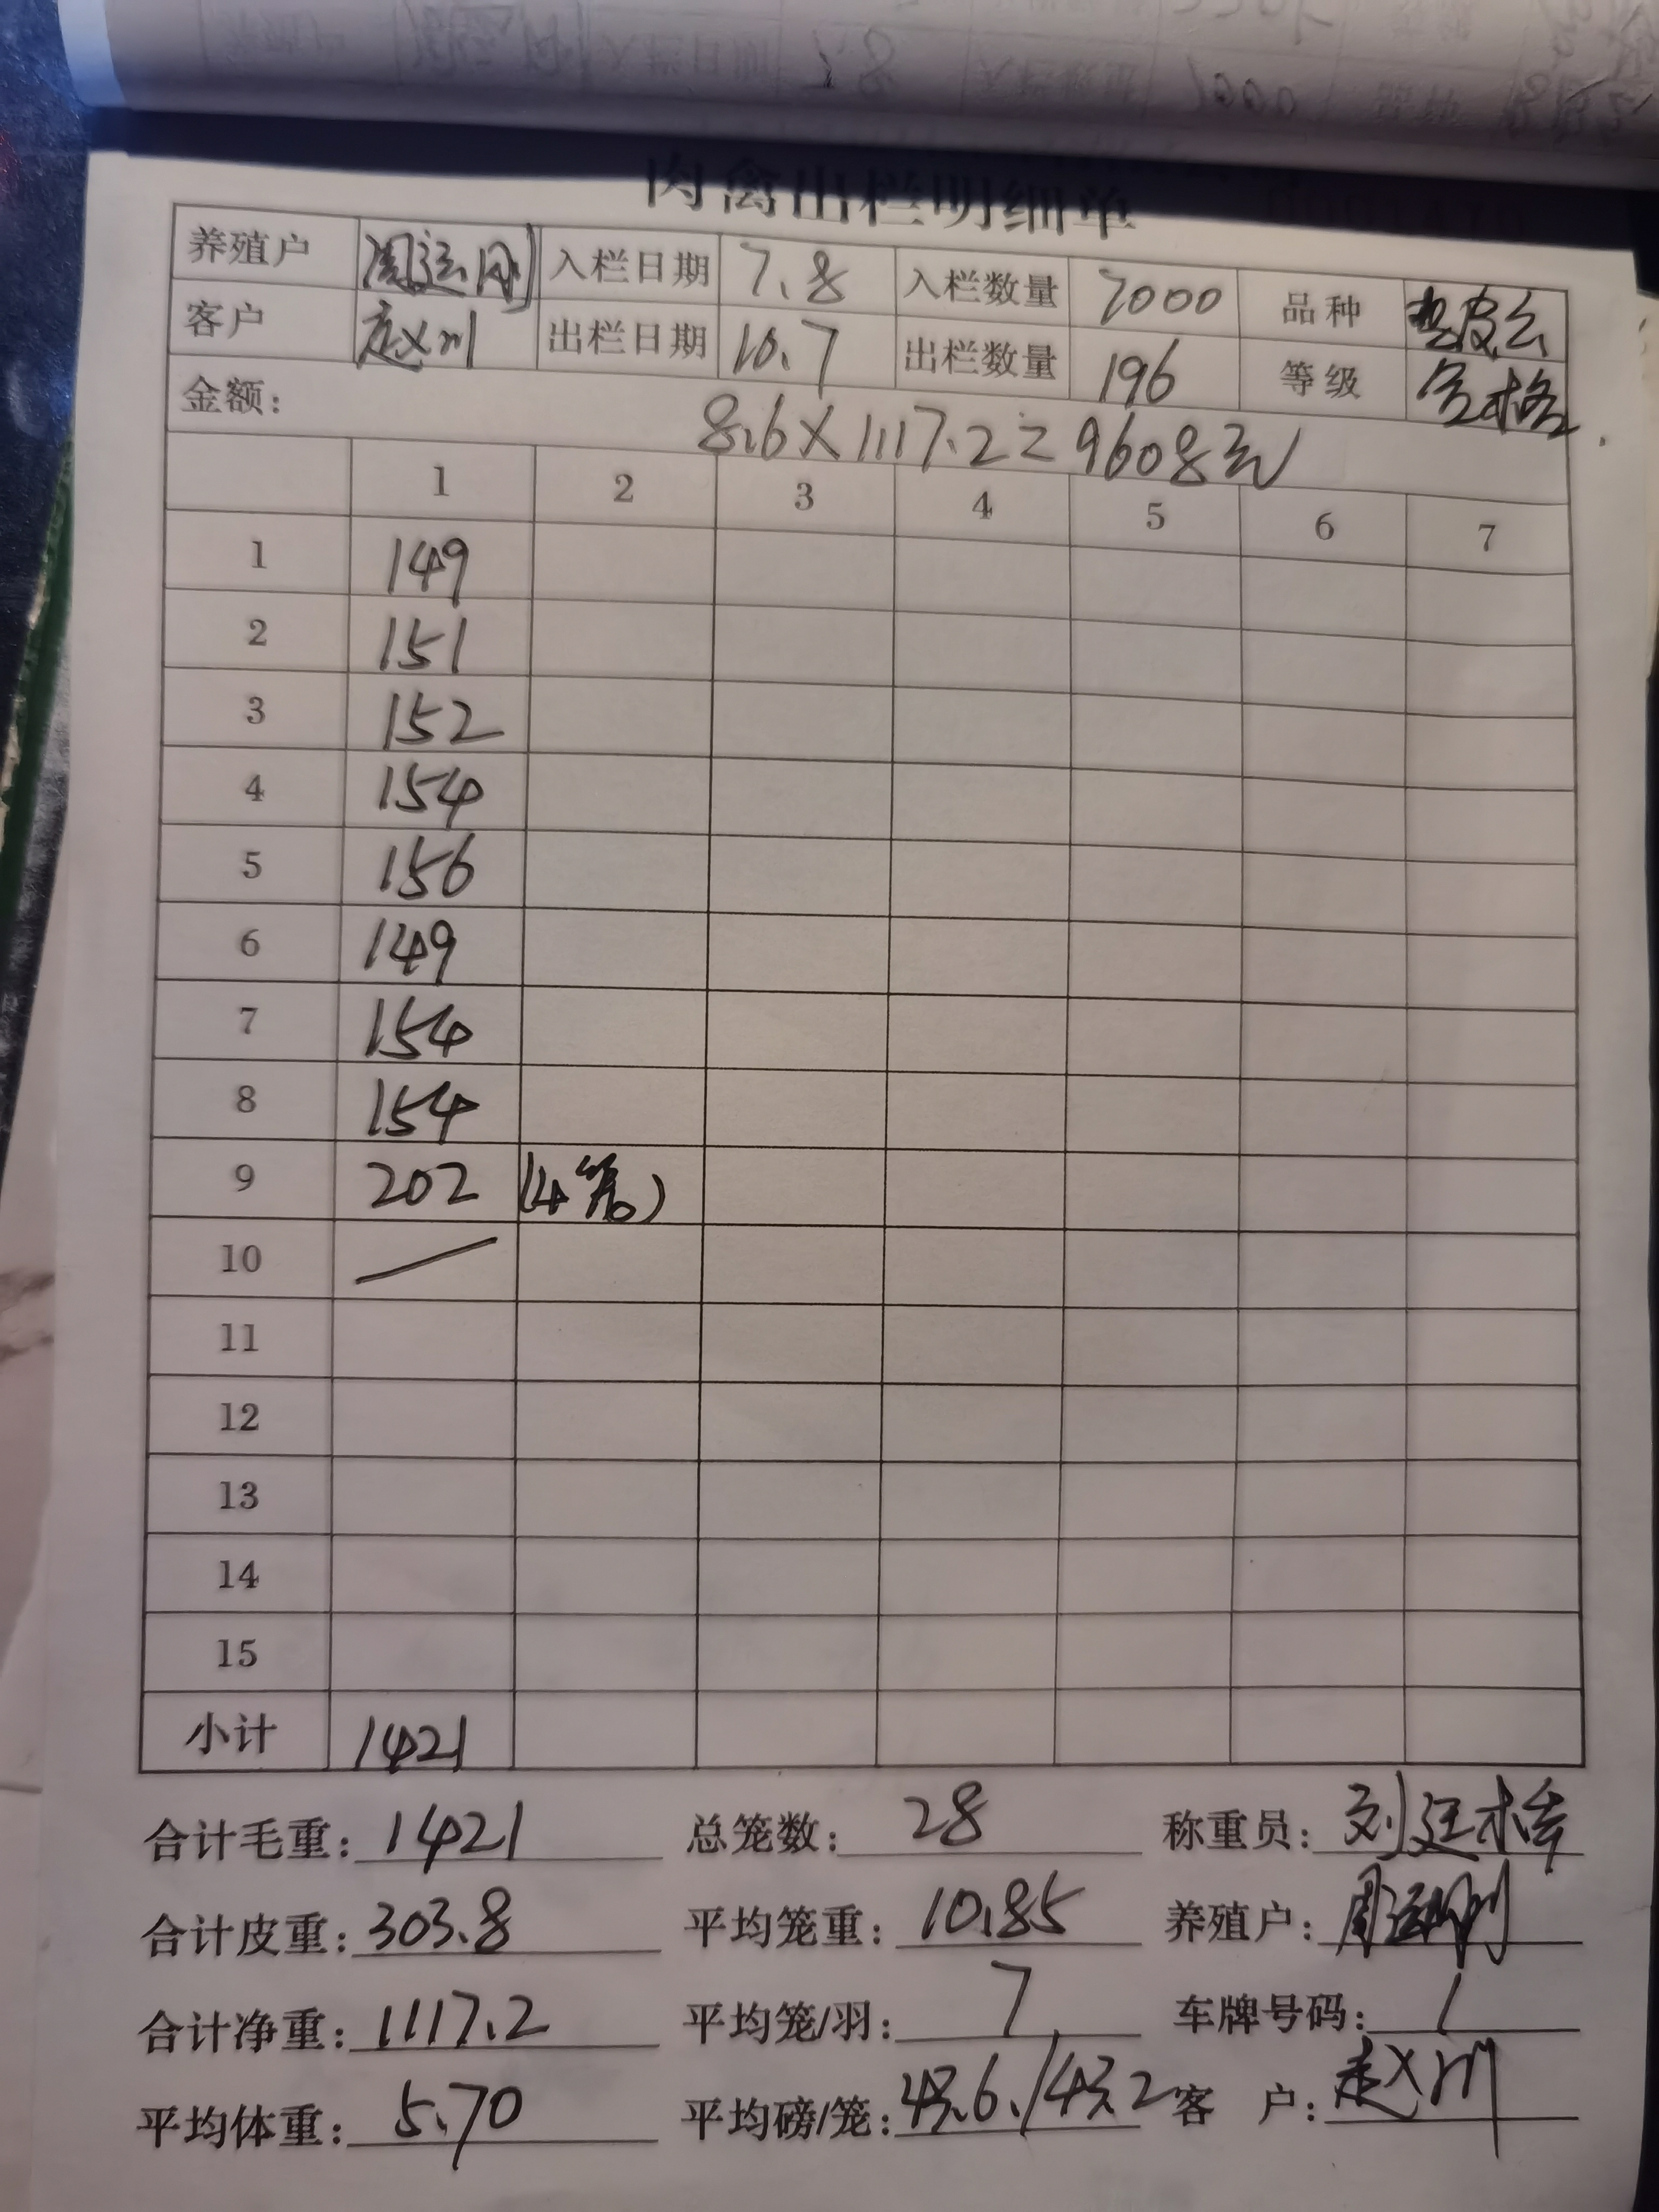 肉禽出栏明细单
养殖户 周运刚 入栏日期 7.8 入栏数量 7000 品种
客户 赵川 出栏日期 10.7 出栏数量 196 等级 合格
金额: 8.6×1117.2=9608元
1 2 3 4 5 6 7
1 149
2 151
3 152
4 154
5 156
6 149
7 154
8 154
9 202 (4笼)
10
11
12
13
14
15
小计 1421
合计毛重: 1421 总笼数: 28 称重员: 刘廷
合计皮重: 303.8 平均笼重: 10.85 养殖户: 周运刚
合计净重: 1117.2 平均笼/羽: 7 车牌号码: /
平均体重: 5.70 平均磅/笼: 客 户: 赵川